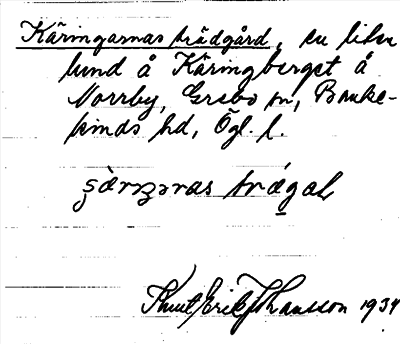 Käringarnas trädgård, en liten
lund å Käringberget å
Norrby, Grebo sn, Banke-
kinds hd, Ögl. l.
Knut Erik Johansson 1934